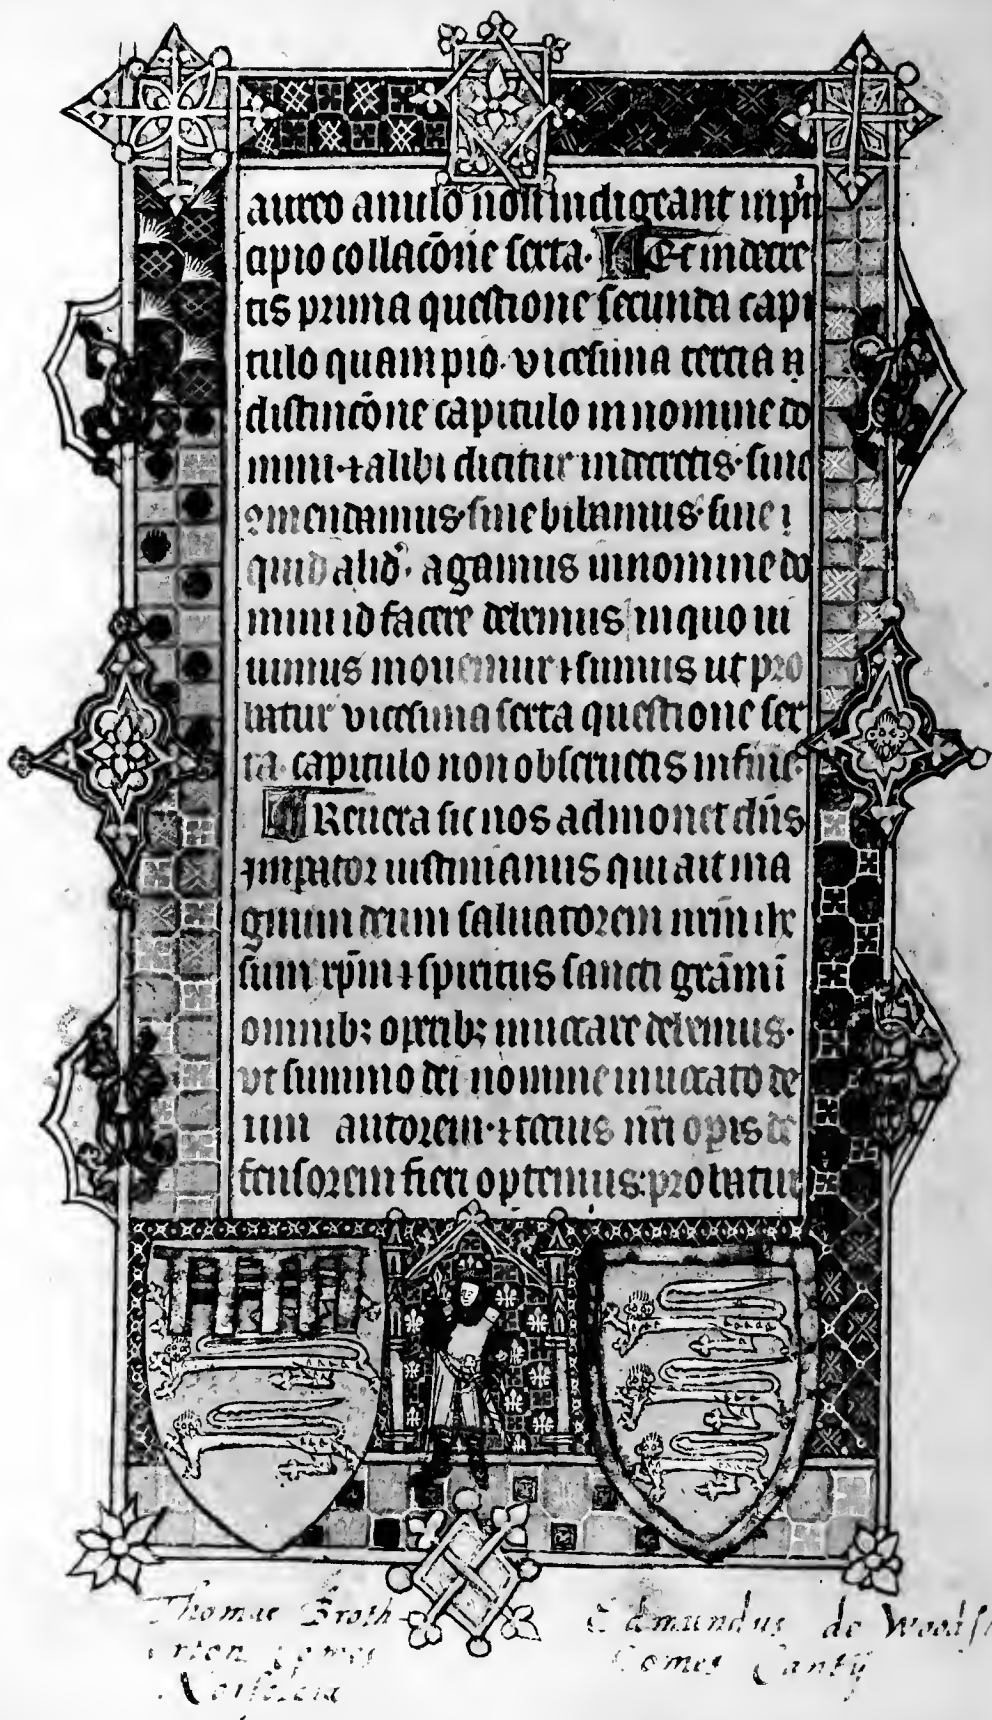 aureo anulo non indigeant in pri
cipio collacōne sexta. Et in decre
tis prima questione secunda capi
tulo quam pio. vicesima tercia
distincōne capitulo in nomine do
mini ⁊ alibi dicitur in decretis. siue
ꝯmendamus siue bibamus siue
quid aliđ. agamus in nomine do
mini id facere debemus in quo ui
uimus mouemur ⁊ sumus ut pro
batur vicesima sexta questione sex
ta. capitulo non obseruetis in fine.
Reuera sic nos admonet dn̄s
imperator iustinianus qui ait ma
gnum deum saluatorem nr̄m ihe
sum xp̄m ⁊ spiritus sancti grām ī
omnibꝫ operibꝫ inuocare debemus.
vt summo dei nomine inuocato de
um autorem. ⁊ tocius nr̄i operis de
fensorem fieri optemus. probatur
Thomas Broth
erton Comes
Norfolcia
Edmundus de Woods
Comes Cantij